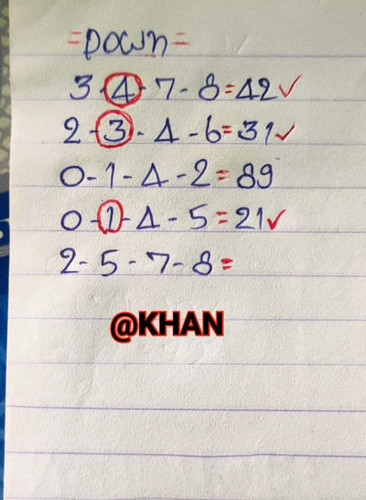 =DOWN=
3-4-7-8=42✓
2-3-4-6=31✓
0-1-4-2=89
0-1-4-5=21✓
2-5-7-8=
@KHAN